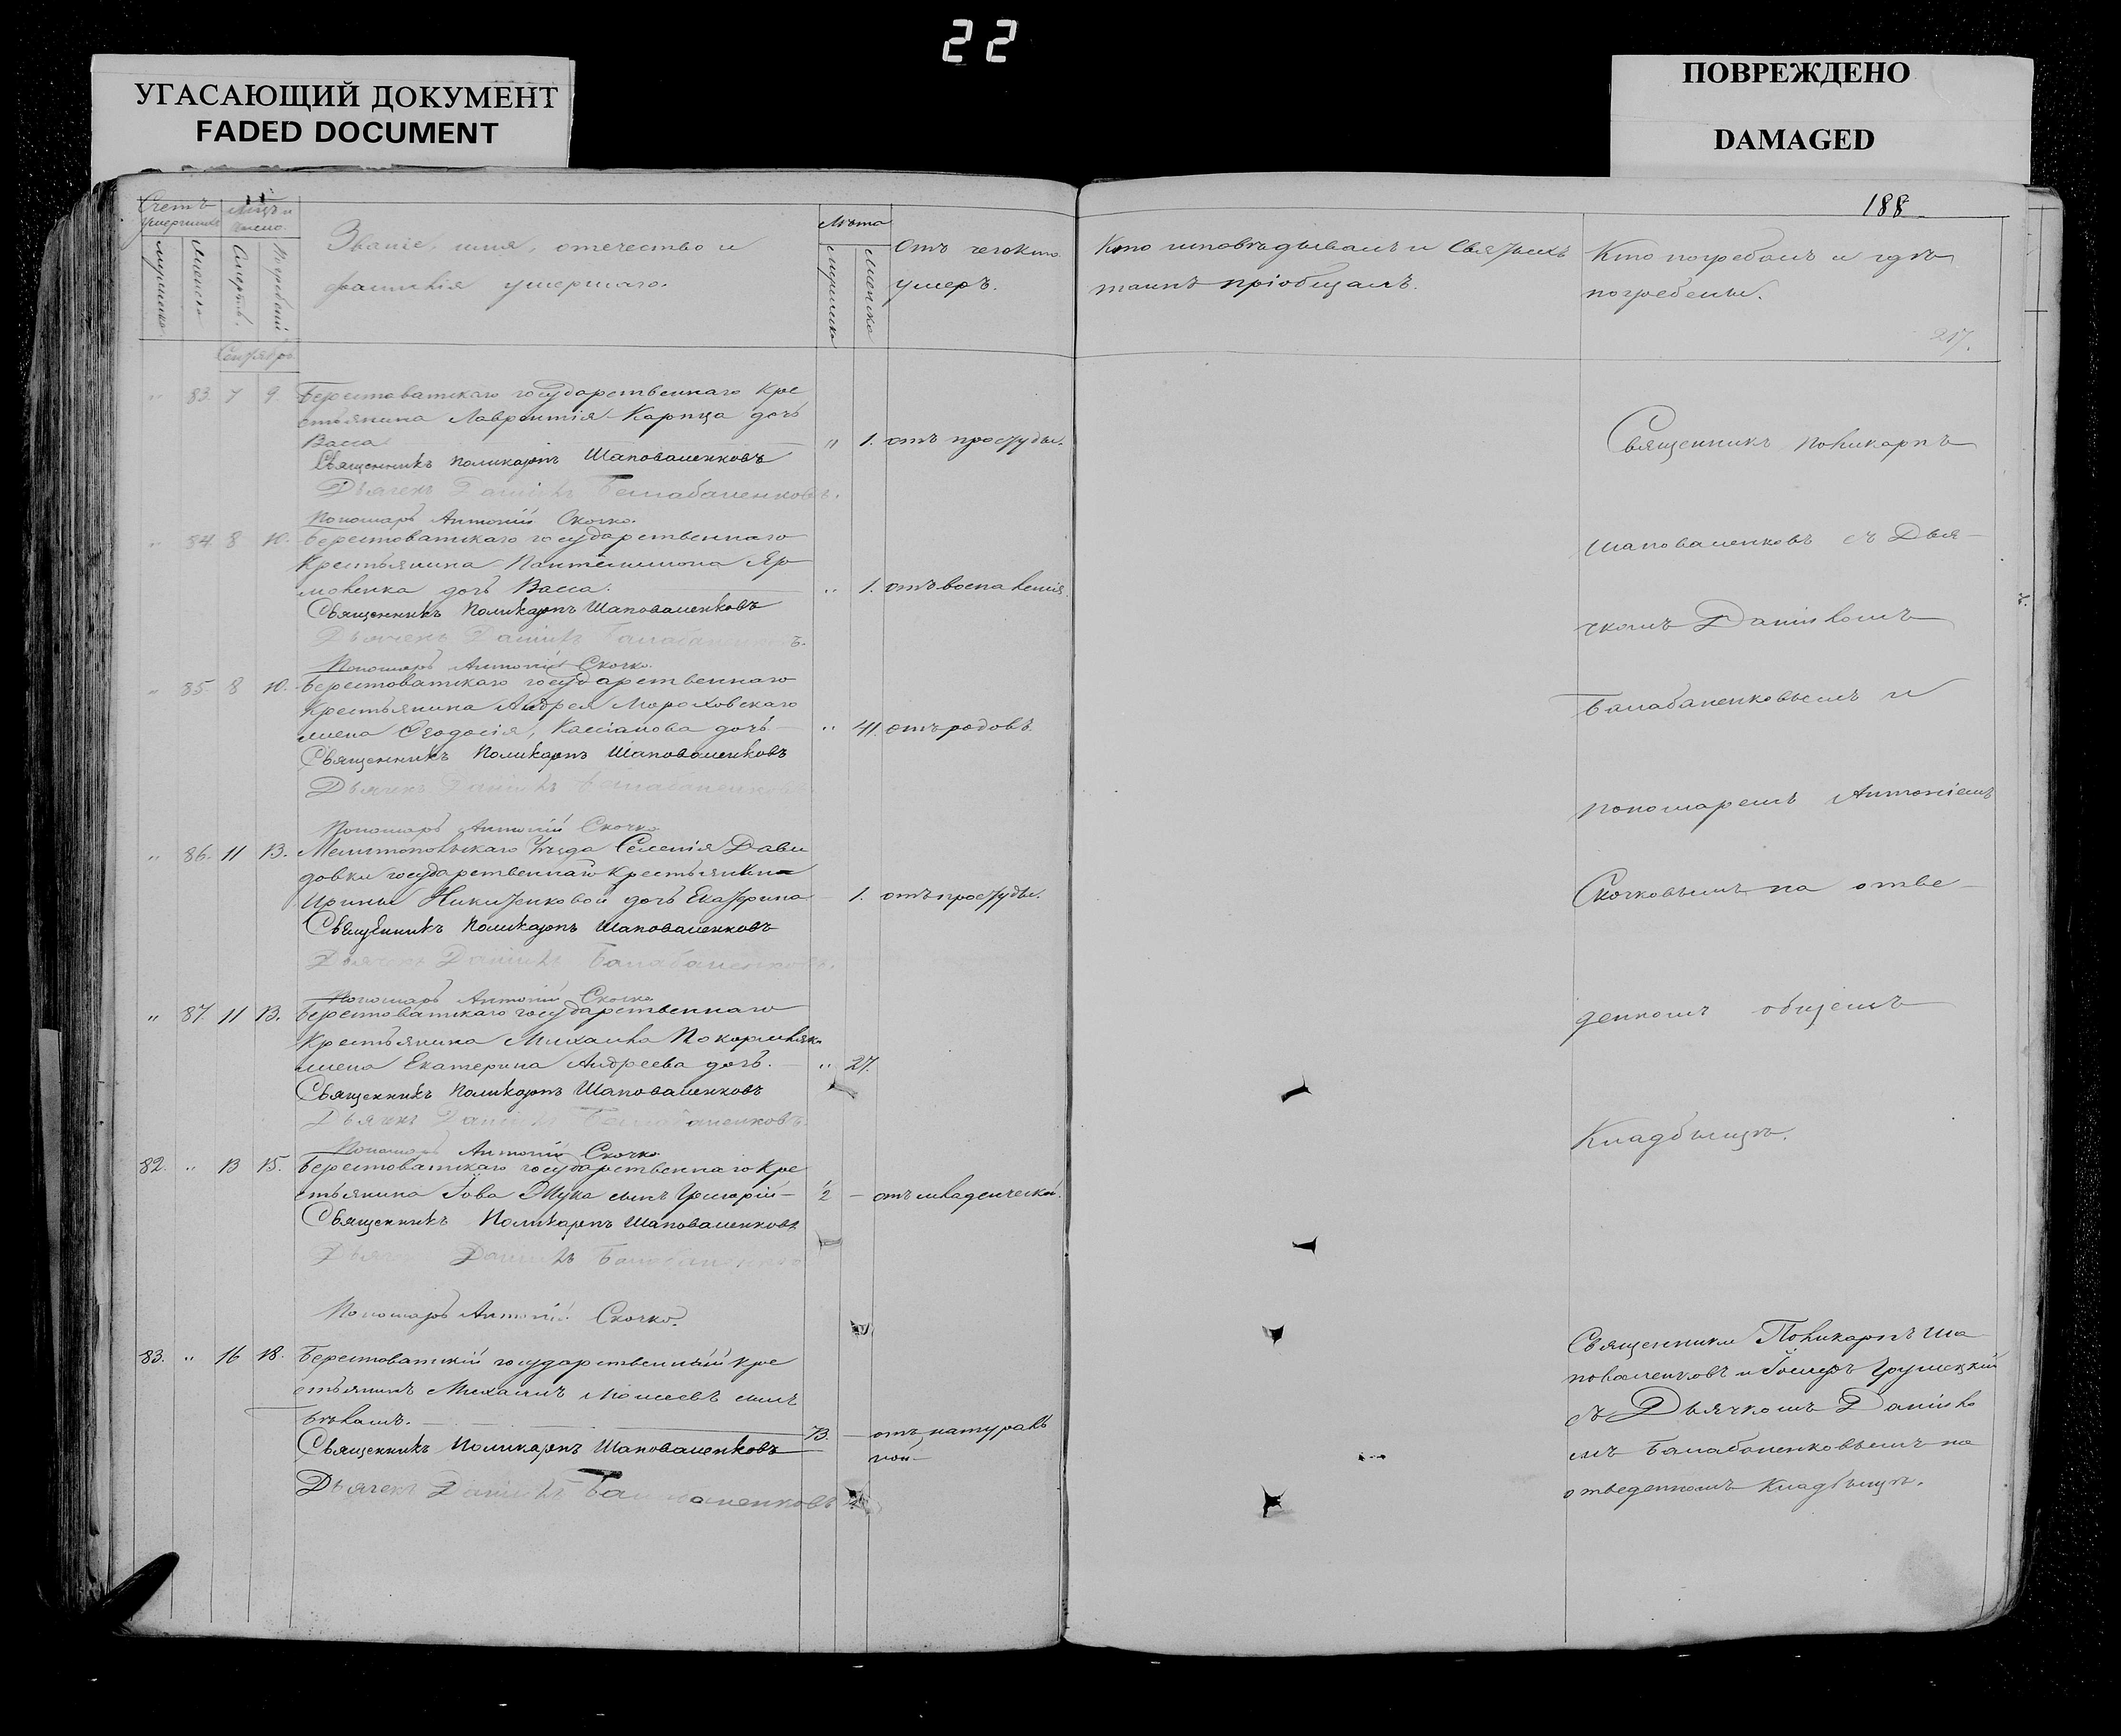 22
УГАСАЮЩИЙ ДОКУМЕНТ
FADED DOCUMENT
ПОВРЕЖДЕНО
DAMAGED
188
Счетъ умершихъ
мужеска
женска
Мѣсяцъ и число.
Смерти.
Погребенія
Званіе, имя, отечество и
фамилія умершаго.
Лѣта
мужеска
женска
Отъ чего кто
умеръ.
Кто исповѣдывалъ и Святыхъ
таинъ пріобщалъ.
Кто погребалъ и гдѣ
погребены.
217.
Сентябрь
" 83. 7 9. Берестоватскаго государственнаго кре
стьянина Лаврентія Карпца дочь
Васса " 1. отъ простуды.
Священникъ Поликарпъ Шаповаленковъ
Дьячекъ Даніилъ Балабаненковъ.
Пономарь Антоній Скочко.
" 84. 8 10. Берестоватскаго государственнаго
Крестьянина Пантелимона Яр
моленка дочь Васса. " 1. отъ воспаленія.
Священникъ Поликарпъ Шаповаленковъ
Дьячекъ Даніилъ Балабаненковъ.
Пономарь Антоній Скочко.
" 85. 8 10. Берестоватскаго государственнаго
Крестьянина Андрея Мороховскаго
жена Феодосія, Кассіанова дочь. " 41. отъ родовъ.
Священникъ Поликарпъ Шаповаленковъ
Дьячекъ Даніилъ Балабаненковъ
Пономарь Антоній Скочко
" 86. 11 13. Мелитопольскаго Уѣзда Селенія Дави
довки государственнаго крестьянина
Ирины Никитенковой дочь Екатерина 1. отъ простуды.
Священникъ Поликарпъ Шаповаленковъ
Дьячекъ Даніилъ Балабаненковъ.
Пономарь Антоній Скочко
" 87. 11 13. Берестоватскаго государственнаго
Крестьянина Михаила Покормляка
жена Екатерина Андреева дочь. " 27.
Священникъ Поликарпъ Шаповаленковъ
Дьячекъ Даніилъ Балабаненковъ.
Пономарь Антоній Скочко
82. " 13 15. Берестоватскаго государственнаго Кре
стьянина Іова Жука сынъ Григорій 1/2 — отъ младенческой.
Священникъ Поликарпъ Шаповаленковъ
Дьячекъ Даніилъ Балабаненковъ
Пономарь Антоній Скочко.
83. " 16 18. Берестоватскій государственный кре
стьянинъ Михаилъ Моисеевъ сынъ
73. — отъ натураль
ной
Священникъ Поликарпъ Шаповаленковъ
Дьячекъ Даніилъ Балабаненковъ
Священникъ Поликарпъ
Шаповаленковъ съ Дья-
чкомъ Даніиломъ
Балабаненковымъ и
пономаремъ Антоніемъ
Скочковымъ на отве-
денномъ общемъ
Кладбищѣ.
Священники Поликарпъ Ша
поваленковъ и Грушецкій
съ Дьячкомъ Даніило
мъ Балабаненковымъ на
отведенномъ Кладбищѣ.